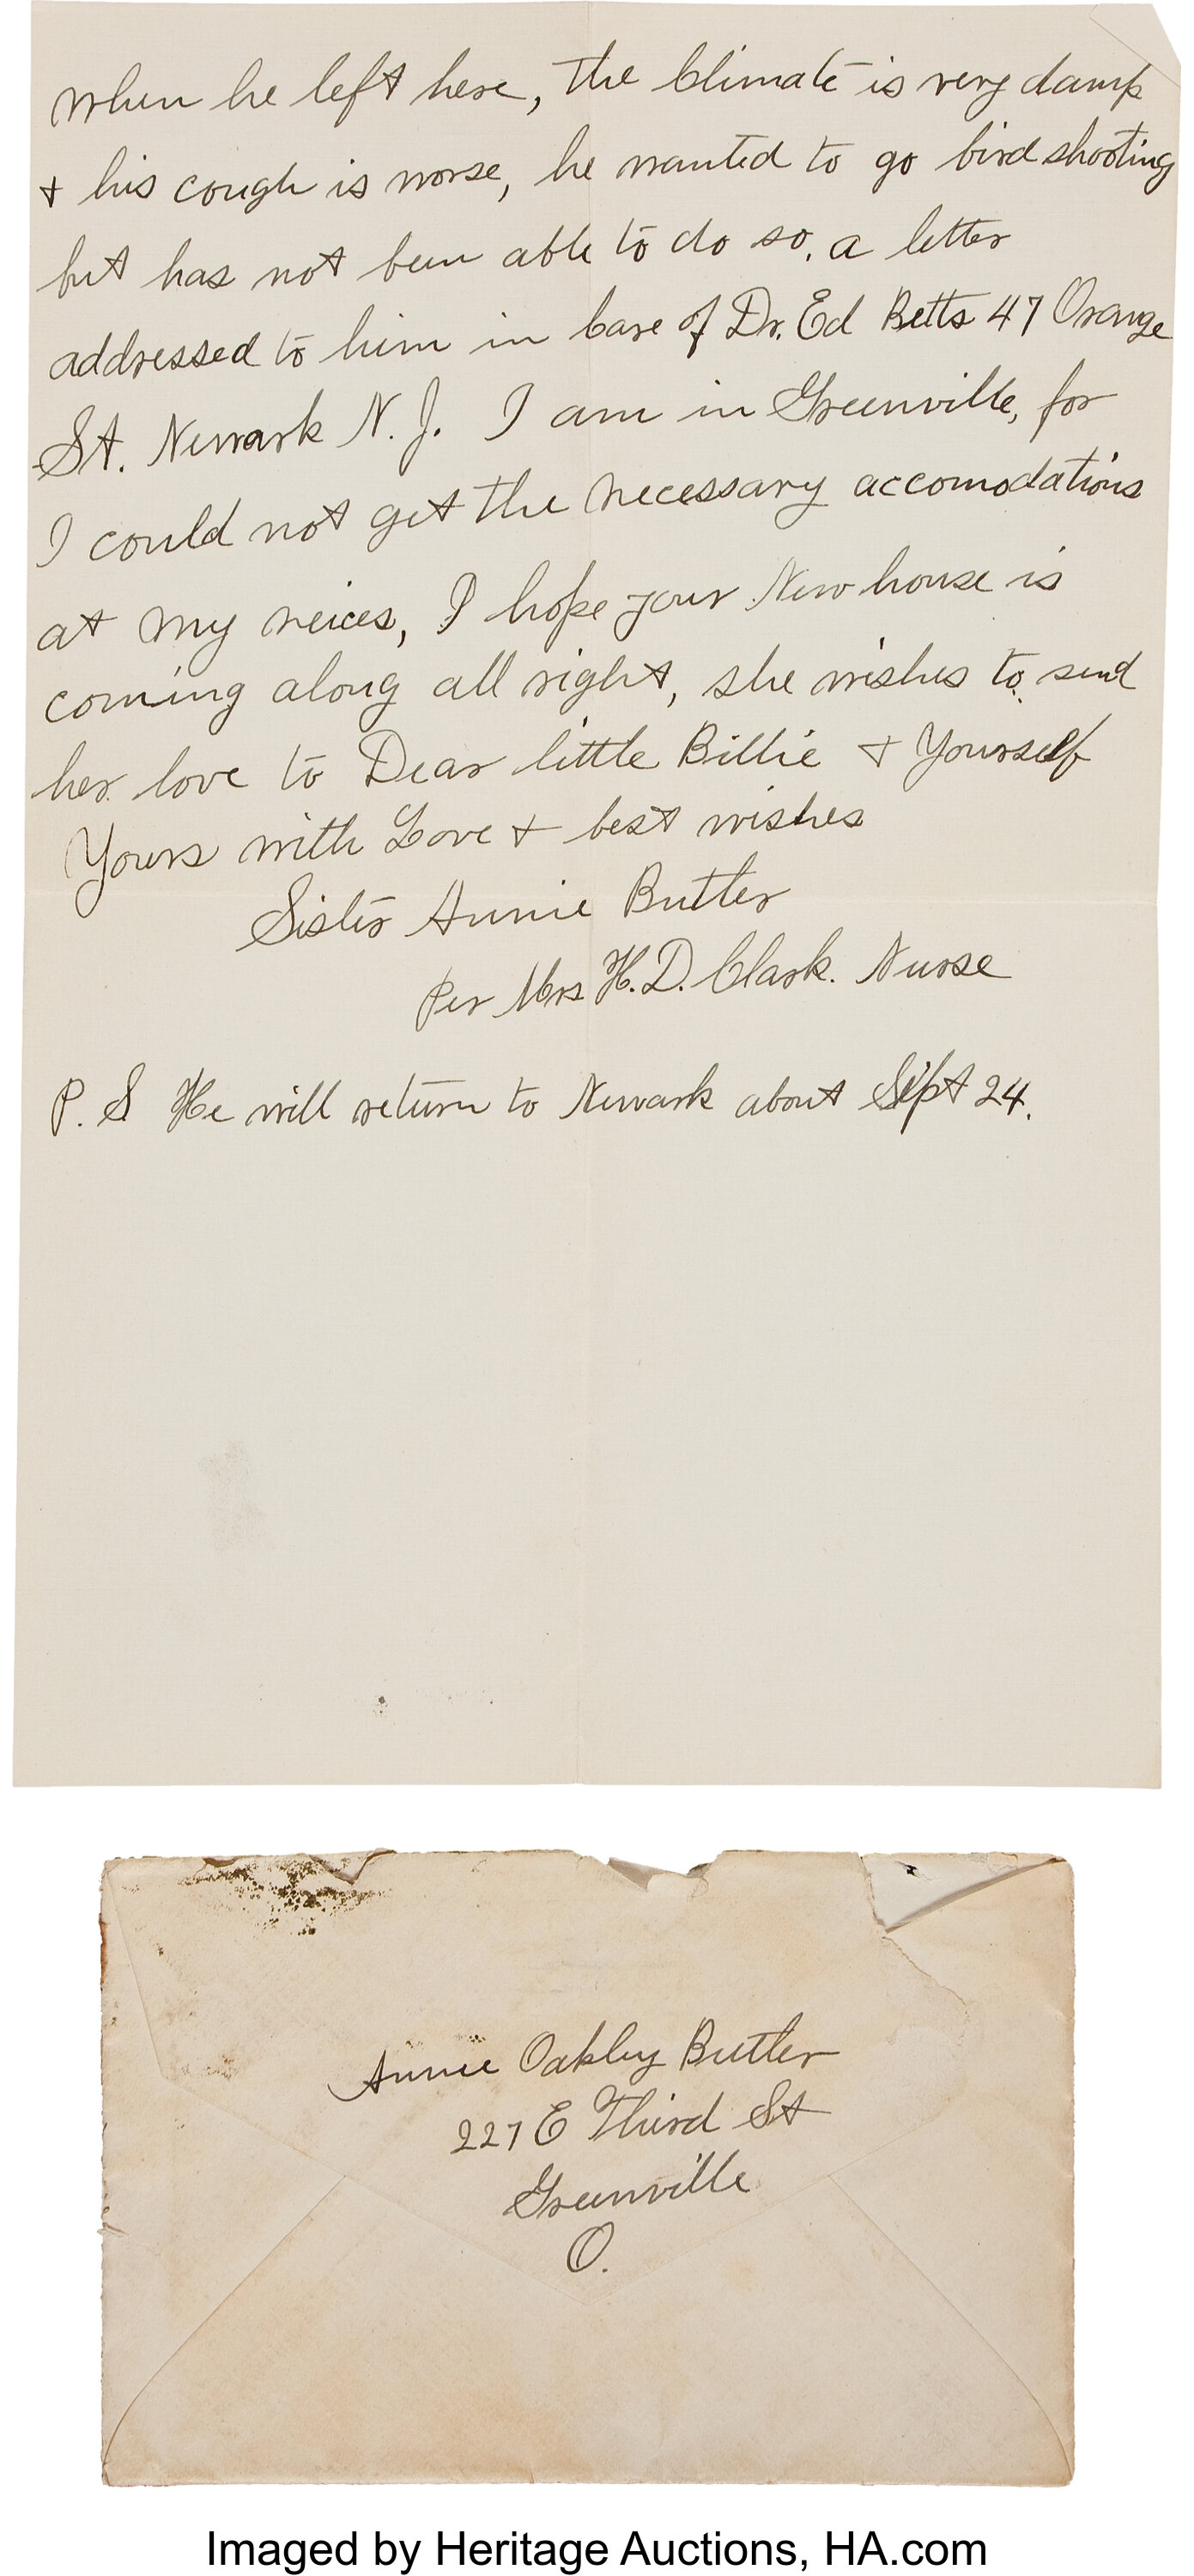 when he left here, the Climate is very damp
+ his cough is worse, he wanted to go bird shooting
but has not been able to do so, a letter
addressed to him in Care of Dr. Ed Betts 47 Orange
St. Newark N. J. I am in Greenville, for
I could not get the necessary accomodations
at my neices, I hope your New house is
coming along all right, she wishes to send
her love to Dear little Billie + Yourself
Yours with Love + best wishes
Sister Annie Butler
Per Mrs H. D. Clark. Nurse
P. S He will return to Newark about Sept 24.
Annie Oakley Butler
227 E Third St
Greenville
O.
Imaged by Heritage Auctions, HA.com